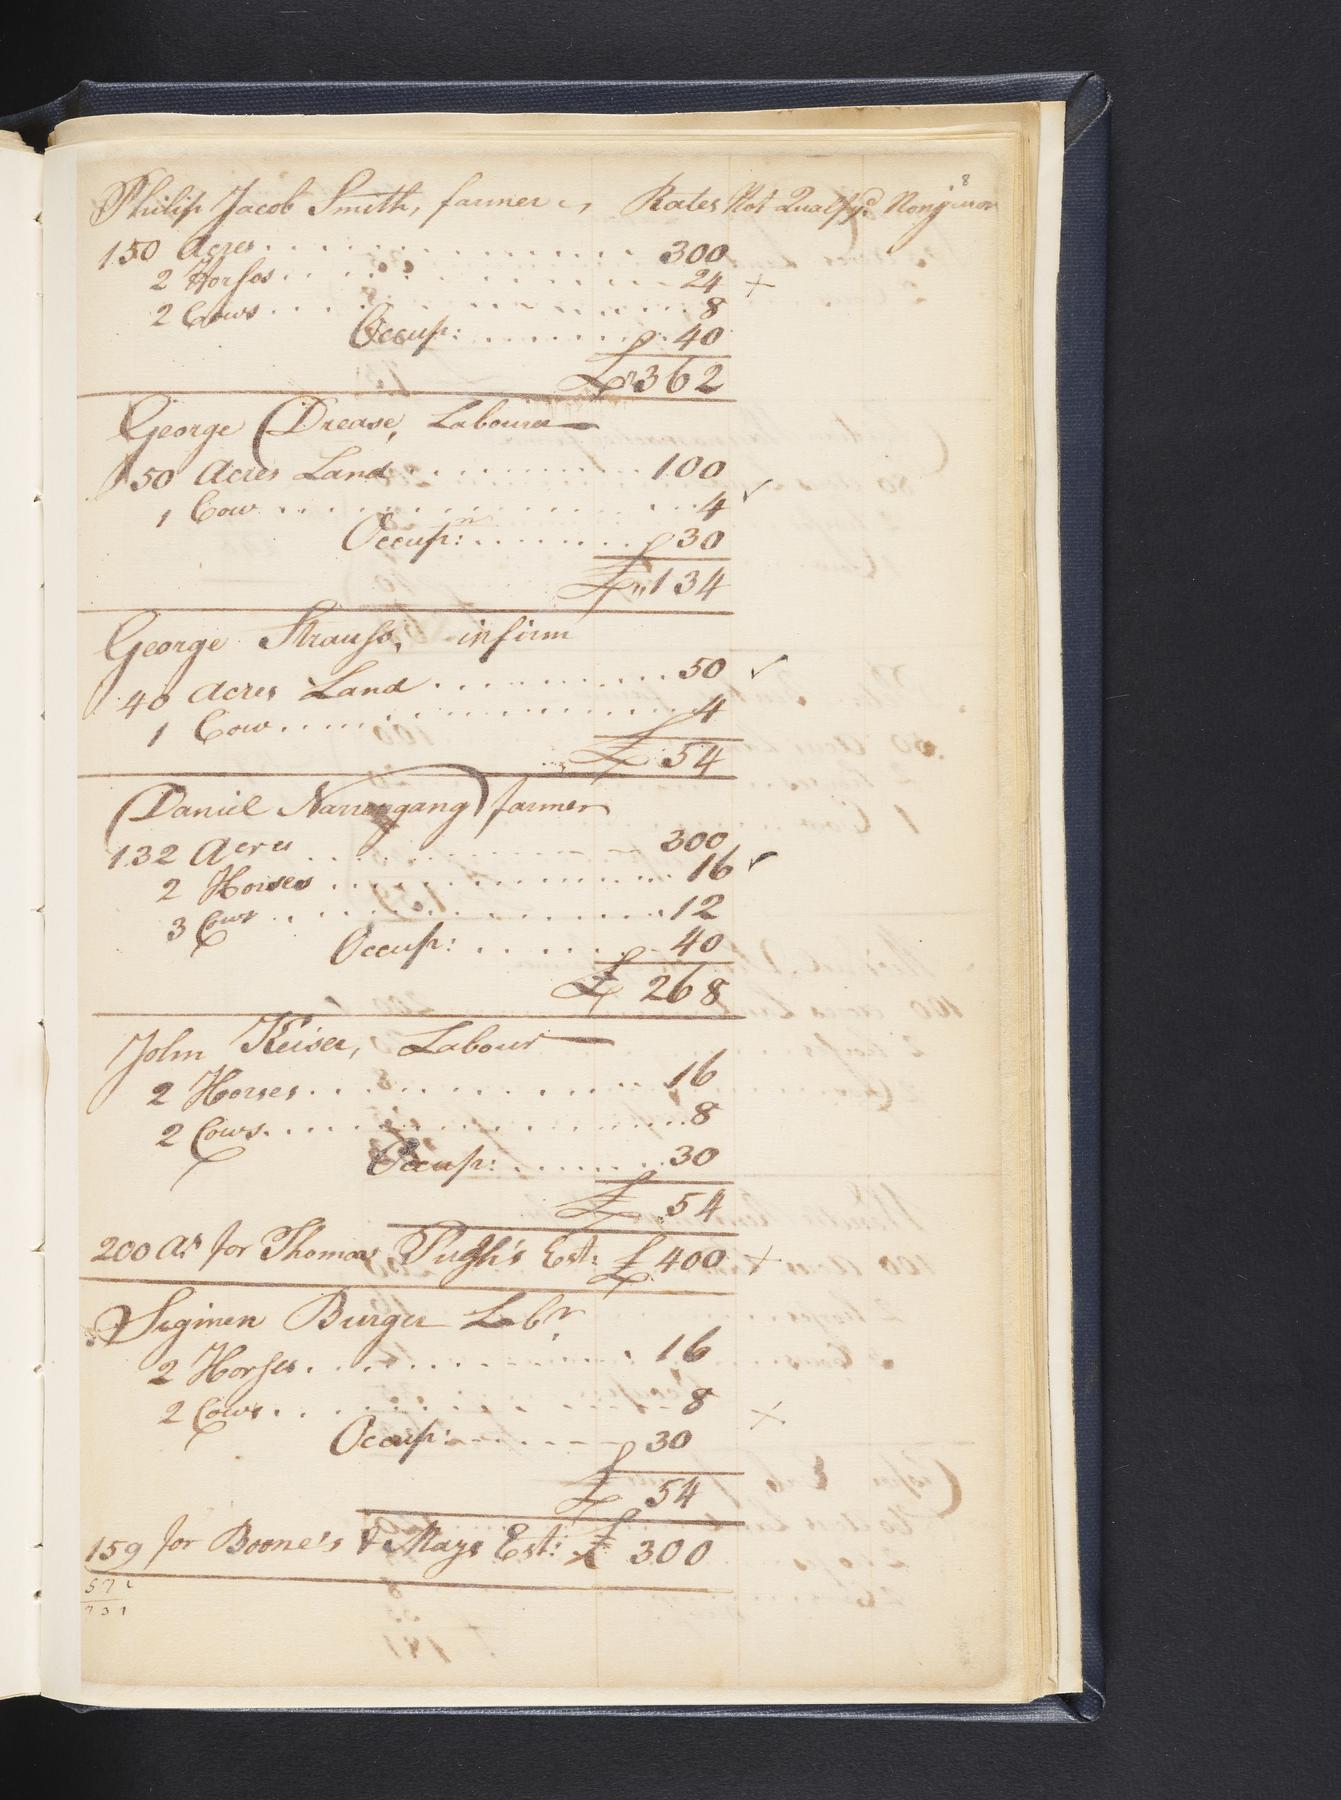 8
Philip Jacob Smith, farmer Rates Not Qualfyd Nonjuror
150 Acres 300
2 Horses 24 +
2 Cows 8
Occup: 40
£362
George Drease, Labourer
50 Acres Land 100
1 Cow 4 ✓
Occupn: 30
£134
George Strauss, infirm
40 Acres Land 50 ✓
1 Cow 4
£54
Daniel Narrengang farmer
132 Acres 300
2 Horses 16 ✓
3 Cows 12
Occup: 40
£268
John Keiser, Labour
2 Horses 16
2 Cows 8
Occup: 30
£54
200 As for Thomas Pugh's Est: £400 +
Seginen Burger Labr,
2 Horses 16
2 Cows 8 +
Occup: 30
£54
159 for Boone's & Mays Est: £300